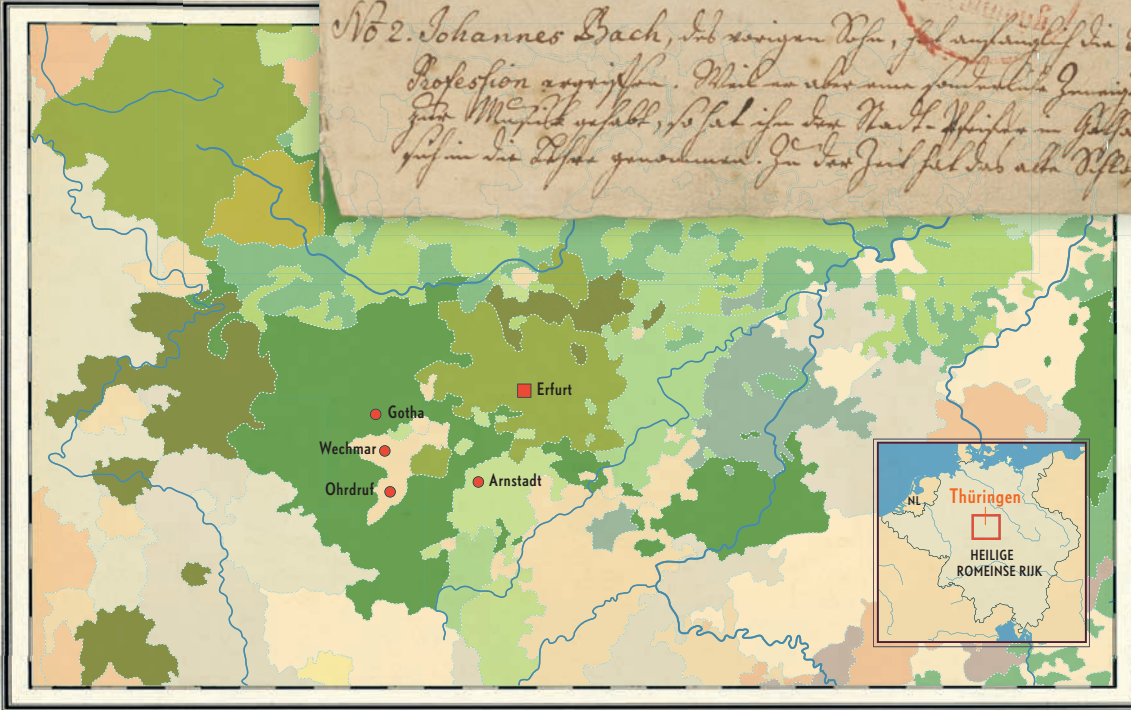 No 2. Johannes Bach, des vorigen Sohn, hat anfänglich die
Profession ergriffen. Weil er aber eine sonderliche
zur Music gehabt, so hat ihn der Stadt-Pfeifer in Gotha
sich in die Lehre genommen. Zu der Zeit hat das alte Schlo
Erfurt
Gotha
Wechmar
Ohrdruf
Arnstadt
NL
Thüringen
HEILIGE
ROMEINSE RIJK